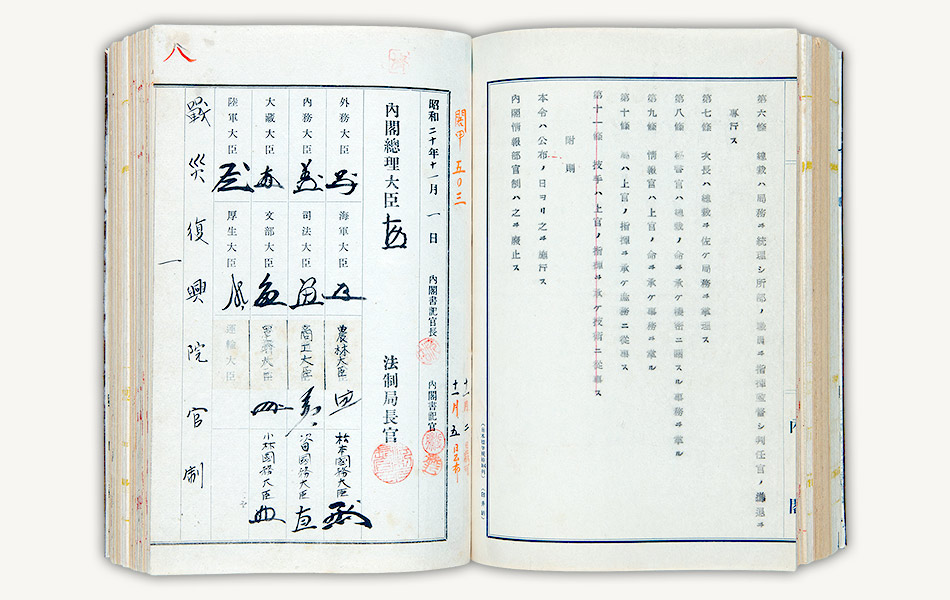 內閣
第六條　總裁ハ局務ヲ統理シ所部ノ職員ヲ指揮監督シ判任官ノ進退ヲ
專行ス
第七條　次長ハ總裁ヲ佐ケ局務ヲ掌理ス
第八條　祕書官ハ總裁ノ命ヲ承ケ機密ニ關スル事務ヲ掌ル
第九條　情報官ハ上官ノ命ヲ承ケ事務ヲ掌ル
第十條　屬ハ上官ノ指揮ヲ承ケ庶務ニ從事ス
第十一條　技手ハ上官ノ指揮ヲ承ケ技術ニ從事ス
附則
本令ハ公布ノ日ヨリ之ヲ施行ス
內閣情報部官制ハ之ヲ廢止ス
閣甲　五〇三
十一月五日公布
昭和二十年十一月一日　內閣書記官長　內閣書記官
內閣總理大臣　法制局長官
外務大臣　海軍大臣　農林大臣　松本國務大臣
內務大臣　司法大臣　商工大臣　國務大臣
大藏大臣　文部大臣　大臣　小林國務大臣
陸軍大臣　厚生大臣　運輸大臣
戰災復興院官制
一
八